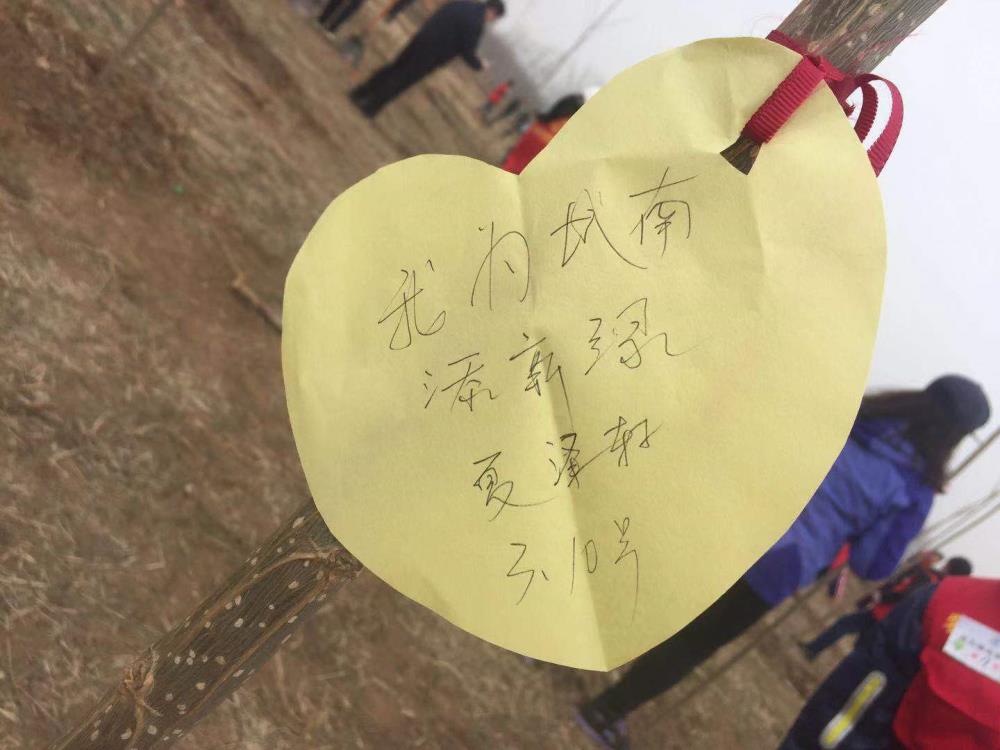 我为城南
添新绿
夏泽轩
10号